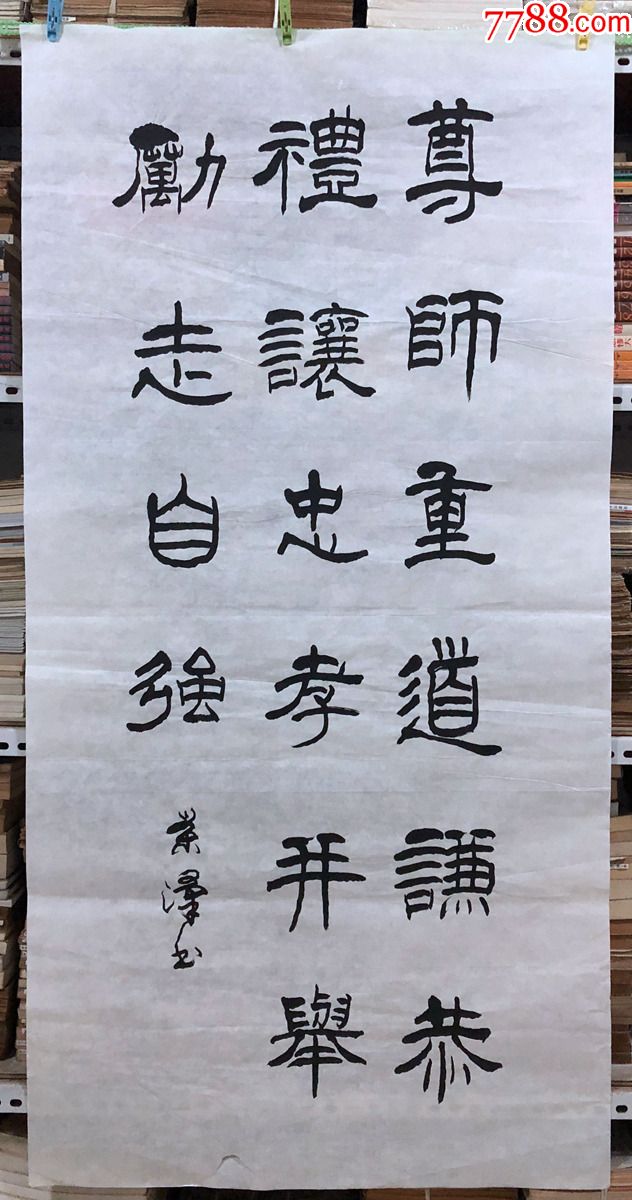 尊師重道謙恭
禮讓忠孝并舉
勵志自強
業澤书
7788.com